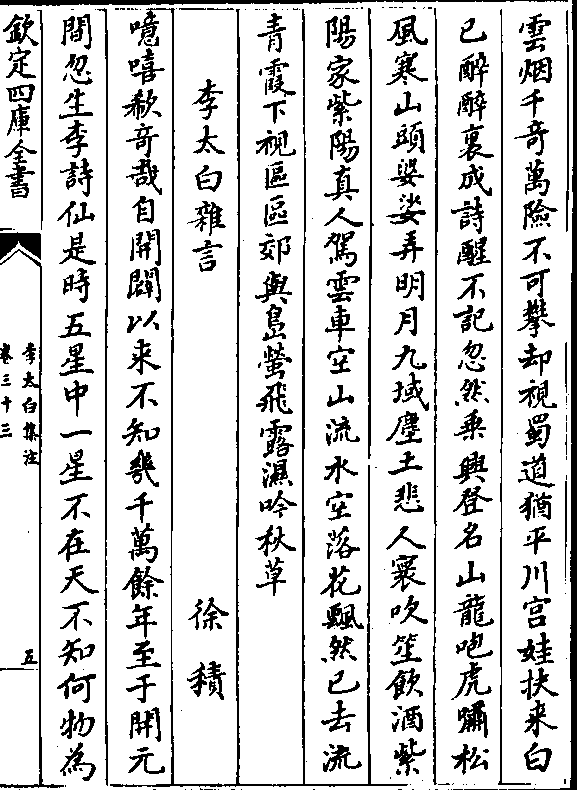 雲烟千奇萬險不可攀却視蜀道猶平川宫娃扶来白
已醉醉裏成詩醒不記忽然乗興登名山龍咆虎嘯松
風寒山頭婆娑弄明月九域塵土悲人寰吹笙飲酒紫
陽家紫陽真人駕雲車空山流水空落花飄然已去流
青霞下視區區郊與島螢飛露濕吟秋草
李太白雜言　徐積
噫嘻欷奇哉自開闢以来不知幾千萬餘年至于開元
間忽生李詩仙是時五星中一星不在天不知何物為
欽定四庫全書
李太白集注
卷三十三
五